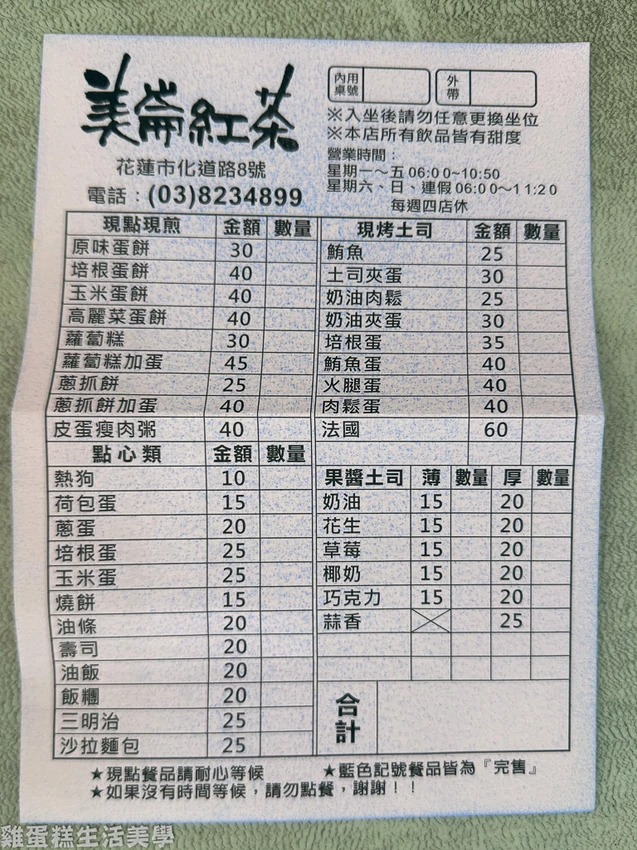 美崙紅茶
花蓮市化道路8號
電話：(03)8234899
內用桌號
外帶
※入坐後請勿任意更換坐位
※本店所有飲品皆有甜度
營業時間：
星期一～五06:00~10:50
星期六、日、連假06:00~11:20
每週四店休
現點現煎 金額 數量
原味蛋餅 30
培根蛋餅 40
玉米蛋餅 40
高麗菜蛋餅 40
蘿蔔糕 30
蘿蔔糕加蛋 45
蔥抓餅 25
蔥抓餅加蛋 40
皮蛋瘦肉粥 40
點心類 金額 數量
熱狗 10
荷包蛋 15
蔥蛋 20
培根蛋 25
玉米蛋 25
燒餅 15
油條 20
壽司 20
油飯 20
飯糰 20
三明治 25
沙拉麵包 25
現烤土司 金額 數量
鮪魚 25
土司夾蛋 30
奶油肉鬆 25
奶油夾蛋 30
培根蛋 35
鮪魚蛋 40
火腿蛋 40
肉鬆蛋 40
法國 60
果醬土司 薄 數量 厚 數量
奶油 15 20
花生 15 20
草莓 15 20
椰奶 15 20
巧克力 15 20
蒜香 25
合計
★現點餐品請耐心等候 ★藍色記號餐品皆為『完售』
★如果沒有時間等候，請勿點餐，謝謝！！
雞蛋糕生活美學